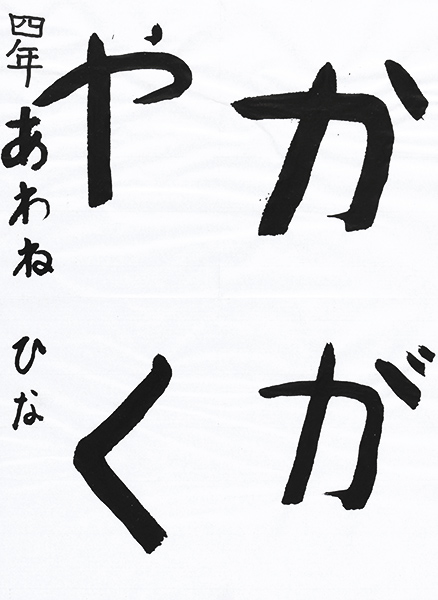 かが
やく
四年 あわね ひな